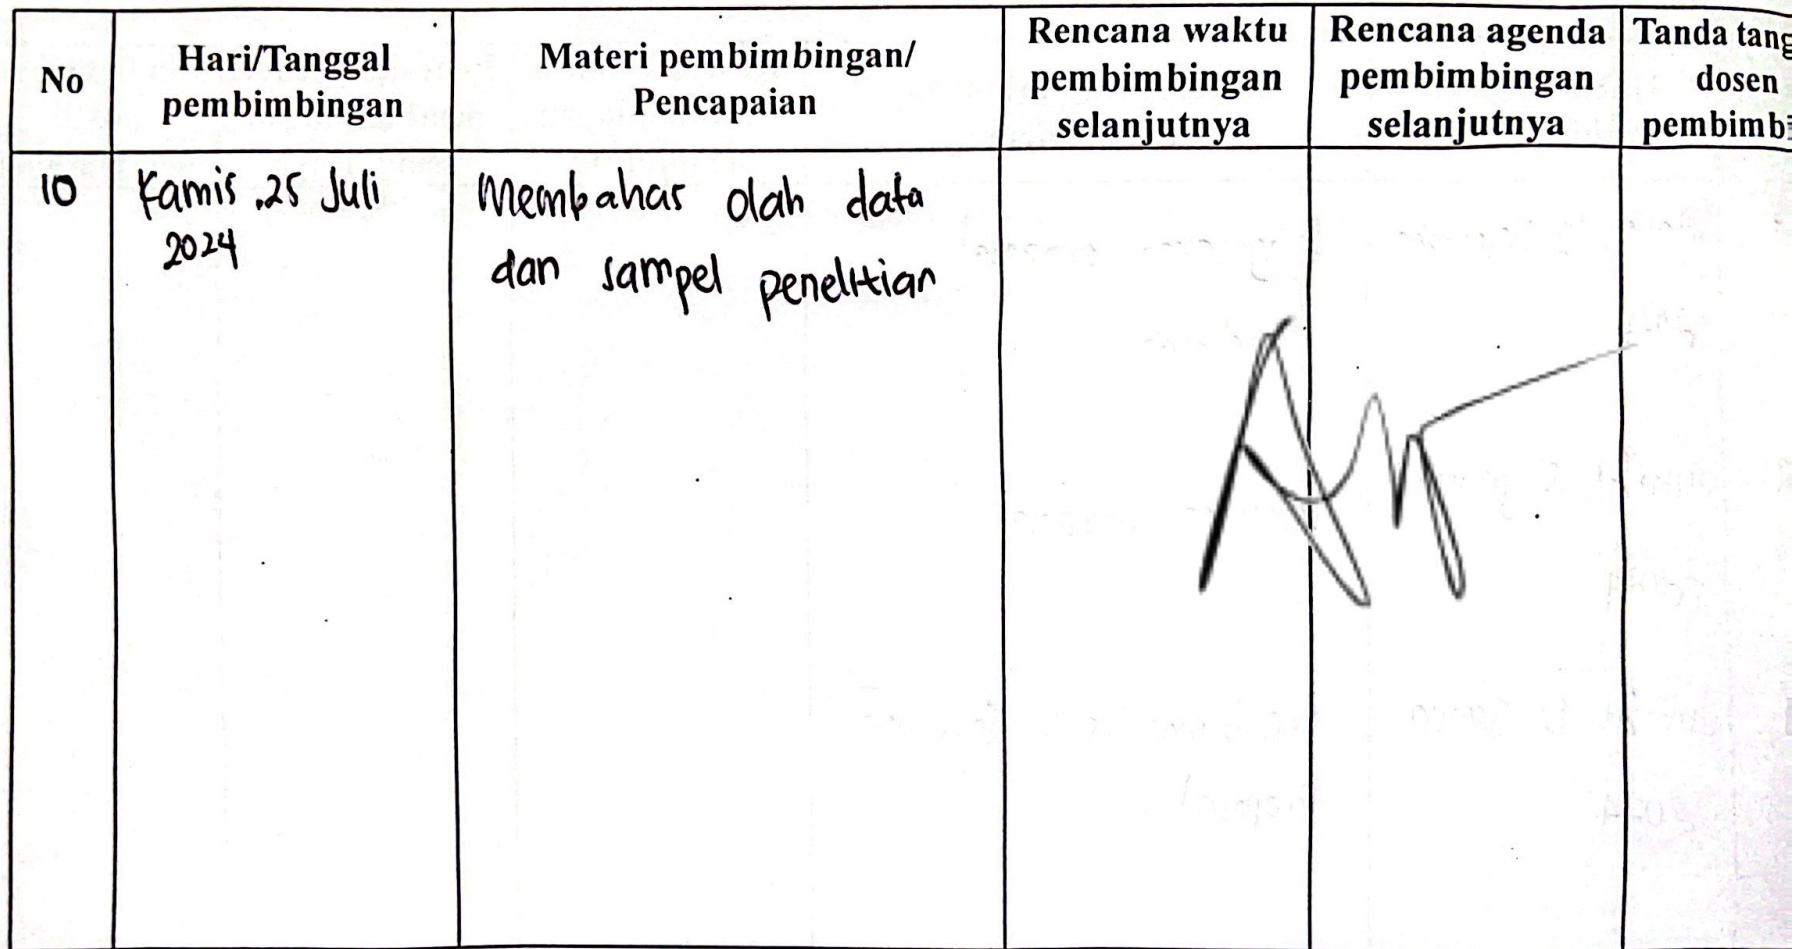 No
Hari/Tanggal
pembimbingan
Materi pembimbingan/
Pencapaian
Rencana waktu
pembimbingan
selanjutnya
Rencana agenda
pembimbingan
selanjutnya
Tanda tang
dosen
pembimbi
10
Kamis, 25 Juli
2024
Membahas olah data
dan sampel penelitian